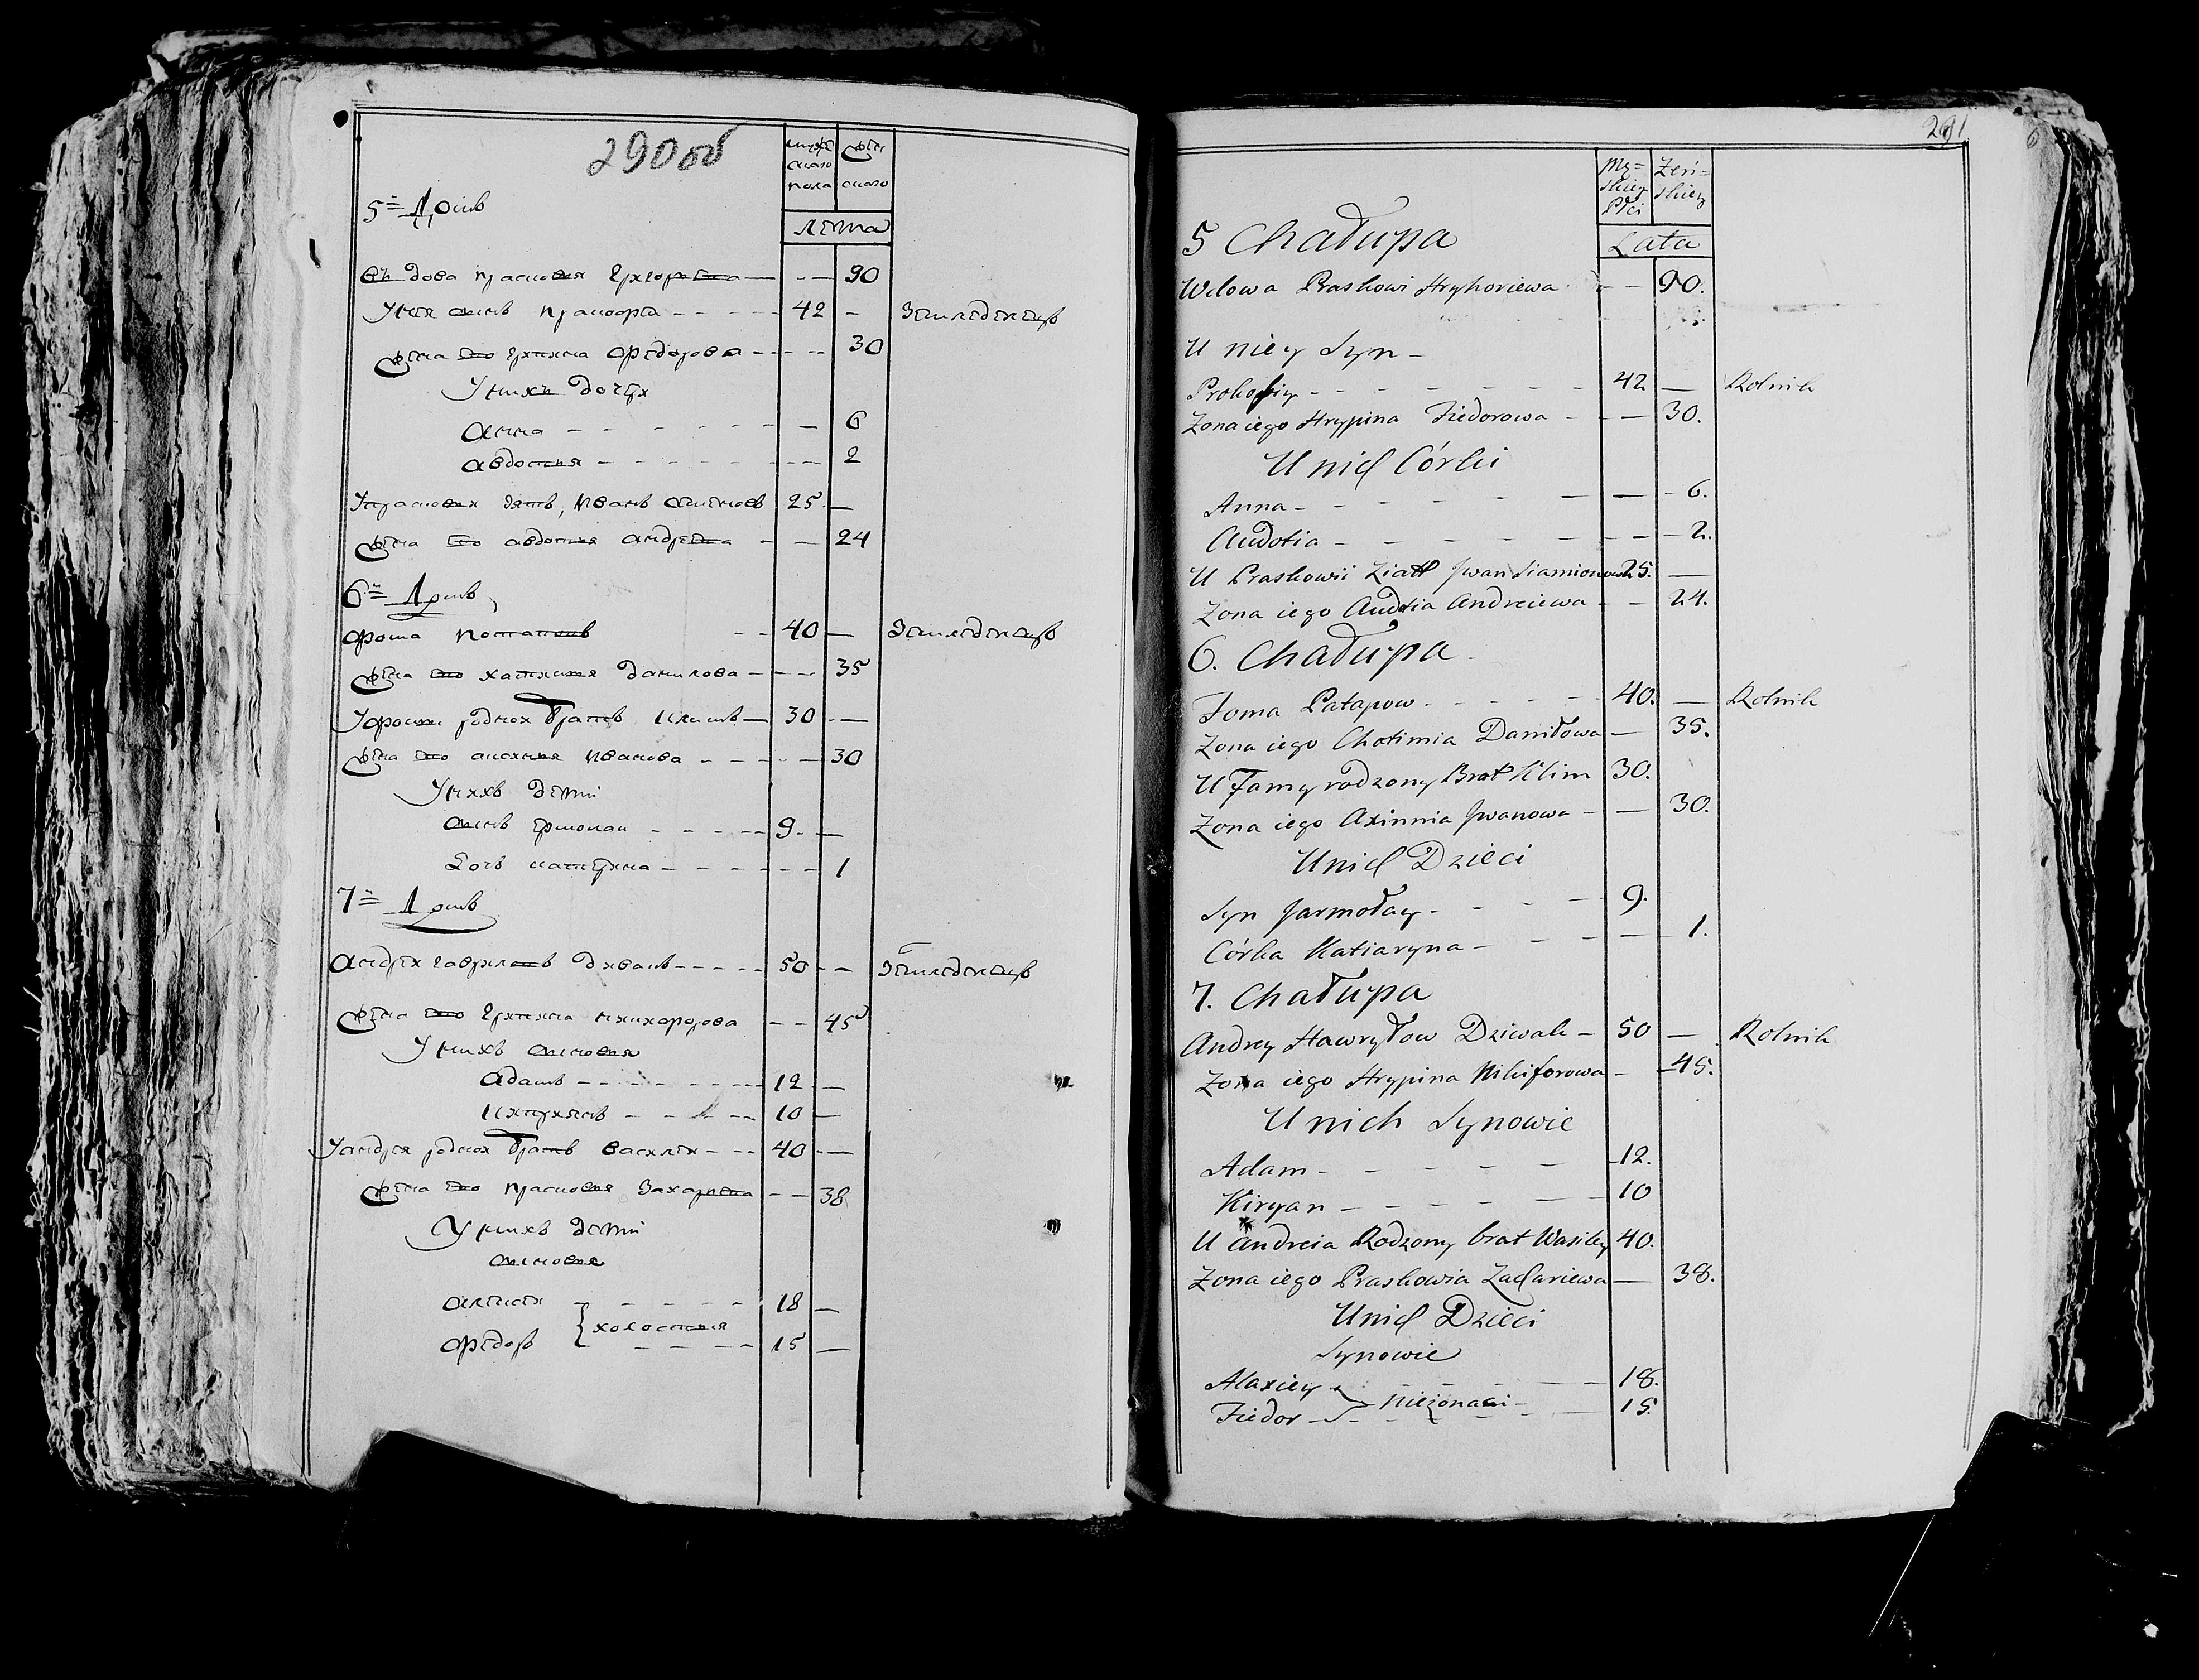 290об
мужескаго пола
женскаго
лета
5й Домъ
въдова прасковия григориева — — — 90
Унея синъ пракофеи — — — 42 — Земледелецъ
жена его грипина федорова — — — 30
У нихъ дочери
анна — — — — 6
авдотия — — — — 2
Упрасковии зять, иванъ симионовъ 25 —
жена его авдотия андреева — — 24
6й Домъ
фома потаповъ — — 40 — Земледелецъ
жена его хатимия данилова — — — 35
Уфоми родной братъ климъ — 30 — —
жена его аксиния иванова — — — 30
У нихъ дети
синъ ермолаи — — — 9 — —
Дочь катерина — — — — 1
7й Домъ
андреи гавриловъ дивакъ — — — 50 — — Земледелецъ
жена его грипина никифорова — — 45
У нихъ синовия
адамъ — — — 12 —
киприянъ — — — 10 —
Уандрея родной братъ василеи — — 40 — —
жена его прасковия захариева — — 38
У нихъ дети
синовия
алексеи — — — 18 —
холостыя
федоръ — — — 15 —
291
Męskiey Płci
Zeńskiey
Lata
5 Chałupa
Wdowa Praskowi Hryhoriewa — — 90.
U niey Syn —
Prokofiy — — — — — 42 — Rolnik
Zona iego Hrypina Fiedorowa — — — 30.
U nich Córki
Anna — — — — — 6.
Audotia — — — — — 2.
U Praskowii Ziatt Jwan Siamionowicz 25. —
Zona iego Audotia Andreiewa — — 24.
6. Chałupa
Foma Patapow — — — 40. — Rolnik
Zona iego Chatimia Daniłowa — 35.
U Famy rodzony Brat Klim 30.
Zona iego Axinnia Jwanowa — — 30.
U nich Dzieci
Syn Jarmołay — — — 9.
Córka Katiaryna — — — — 1.
7. Chałupa
Andrey Hawryłow Dziwak — 50 — Rolnik
Zona iego Hrypina Nikiforowa — — 45.
U nich Synowie
Adam — — — — — 12.
Kiryan — — — — — 10
U Andreia Rodzony brat Wasiley 40.
Zona iego Praskowia Zachariewa — 38.
U nich Dzieci
Synowie
Alaxiey — — — 18.
nieżonaci —
Fiedor — — — — 15.